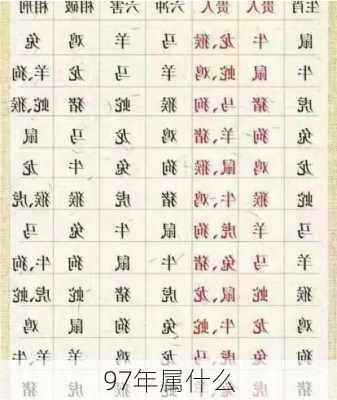 生肖 贵人 贵人 六冲 六害 相破 相刑
鼠 牛 龙、猴 马 羊 鸡 兔
牛 鼠 蛇、鸡 羊 马 龙 羊、狗
虎 猪 马、狗 猴 蛇 猪 蛇、猴
兔 狗 羊、猪 鸡 龙 马 鼠
龙 鸡 鼠、猴 狗 兔 牛 龙
蛇 猴 牛、鸡 猪 虎 猴 猴、虎
马 羊 虎、狗 鼠 牛 兔 马
羊 马 兔、猪 牛 鼠 狗 牛、狗
猴 蛇 鼠、龙 虎 猪 蛇 虎、蛇
鸡 龙 牛、蛇 兔 狗 鼠 鸡
狗 兔 虎、马 龙 鸡 羊 羊、牛
猪 虎
猪
97年属什么